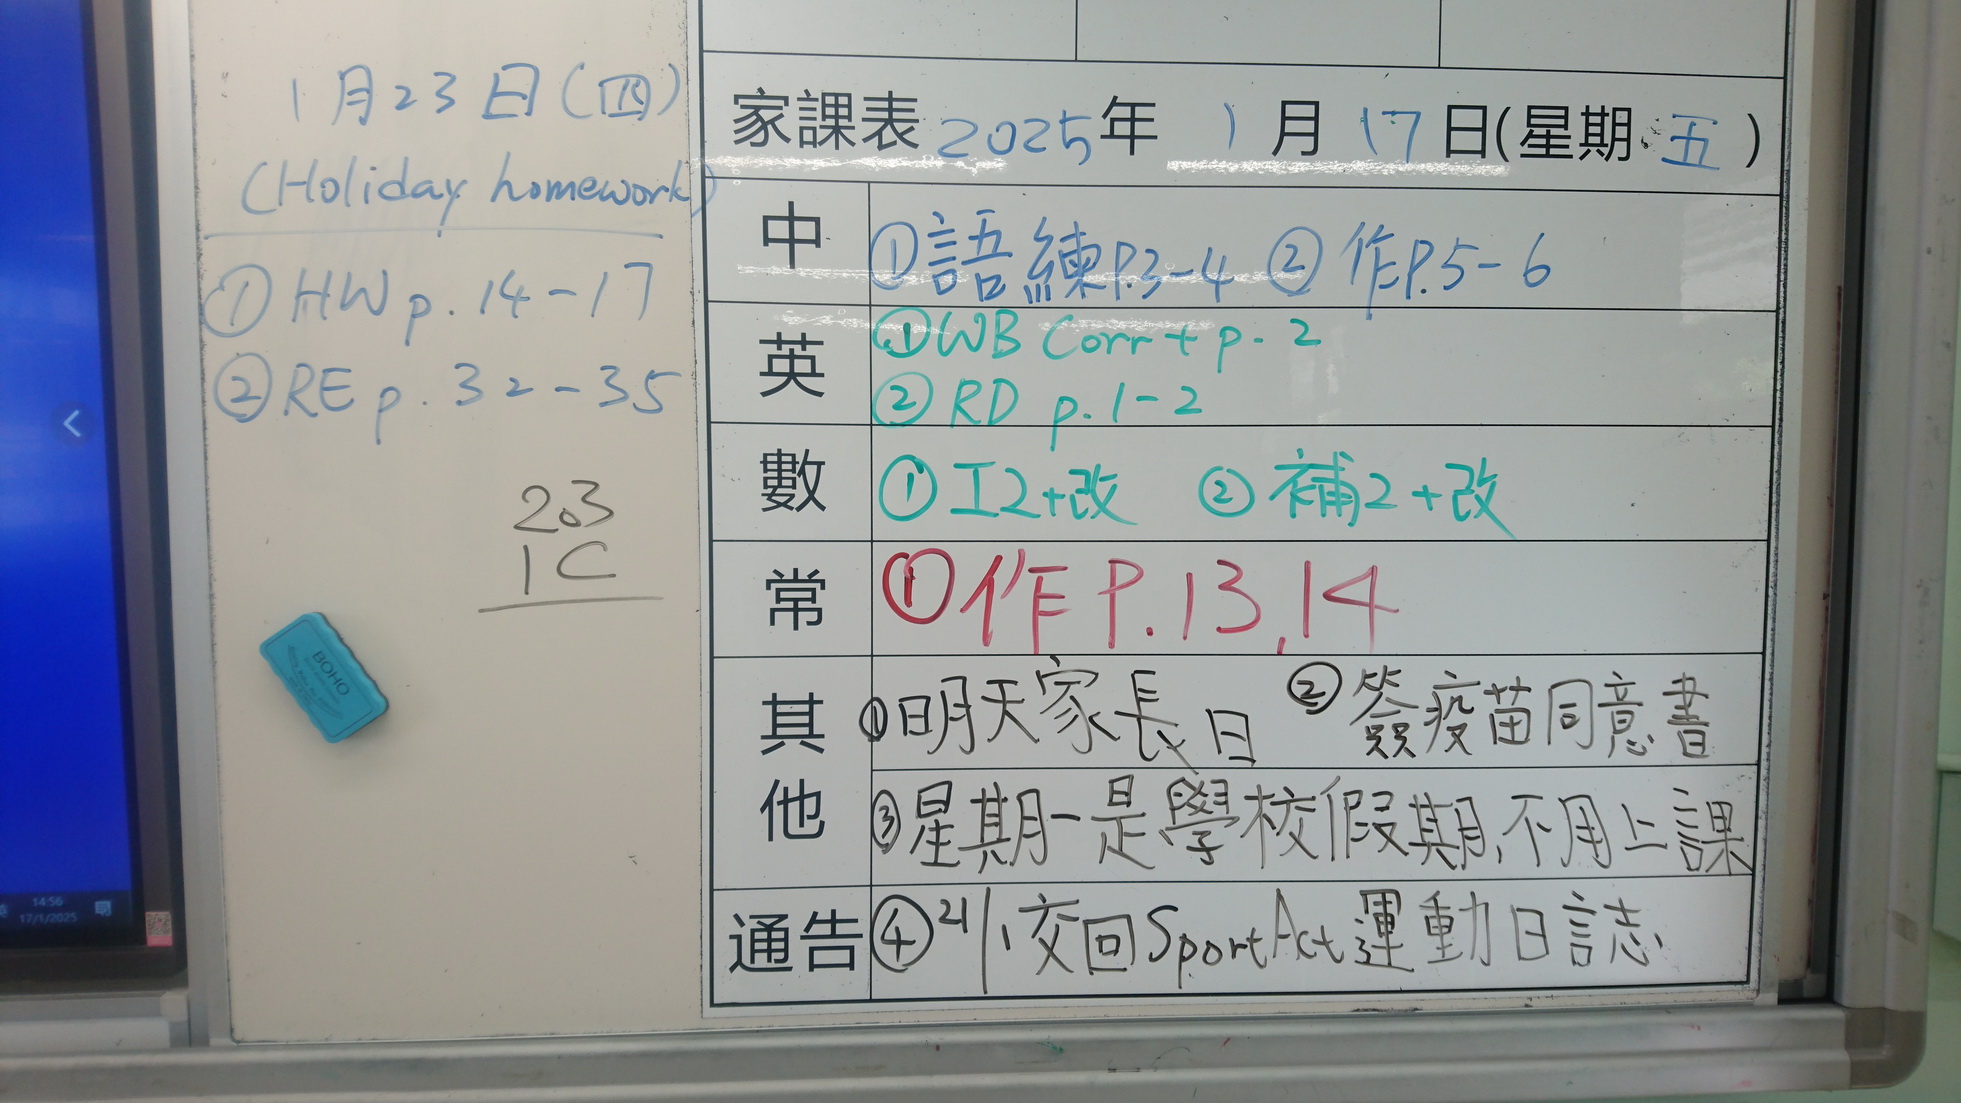 1月23日(四)
(Holiday homework)
①HW p.14-17
②RE p.32-35
203
1C
BOHO
14:56
17/1/2025
家課表 2025年 1月17日(星期五)
中 ①語練P.3-4 ②作P.5-6
英 ①WB Corr+p.2
②RD p.1-2
數 ①工2+改 ②補2+改
常 ①作P.13,14
其他 ①明天家長日 ②簽疫苗同意書
③星期一是學校假期,不用上課
通告 ④21/1交回SportAct運動日誌.